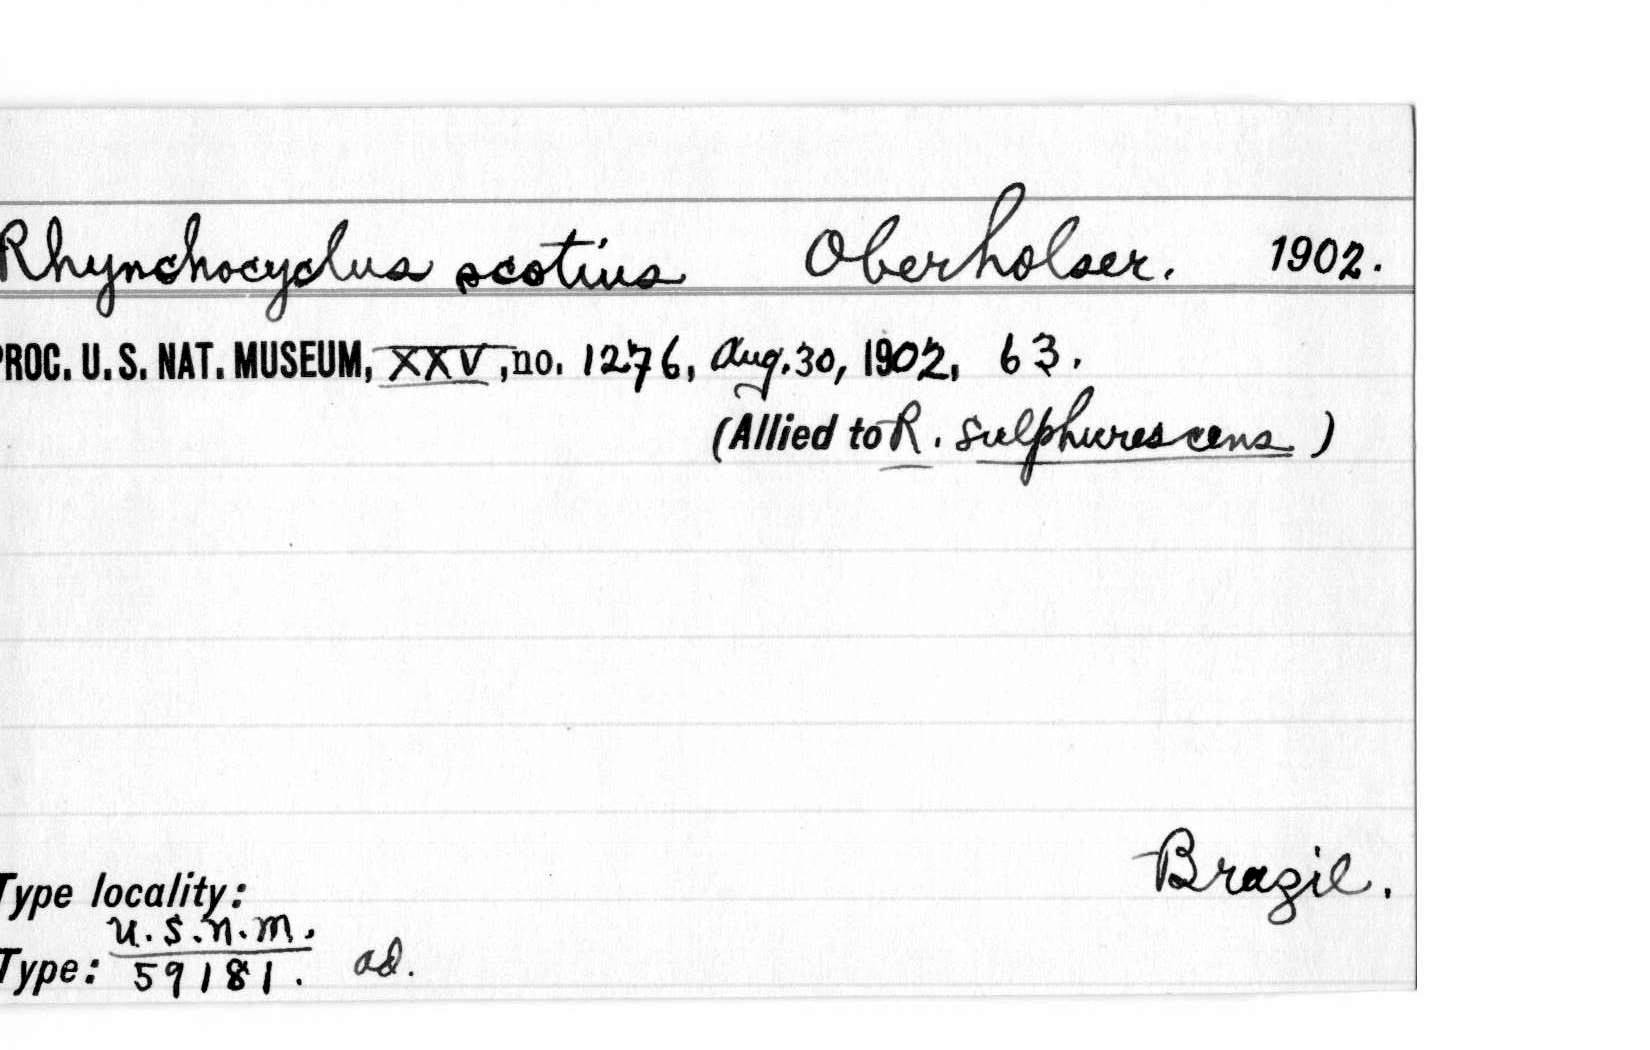 Rhynchocyclus scotius Oberholser. 1902.
PROC. U. S. NAT. MUSEUM, XXV, no. 1276, Aug. 30, 1902, 63.
(Allied to R. sulphurescens)
Brazil.
Type locality:
U.S.N.M.
Type: 59181. ad.